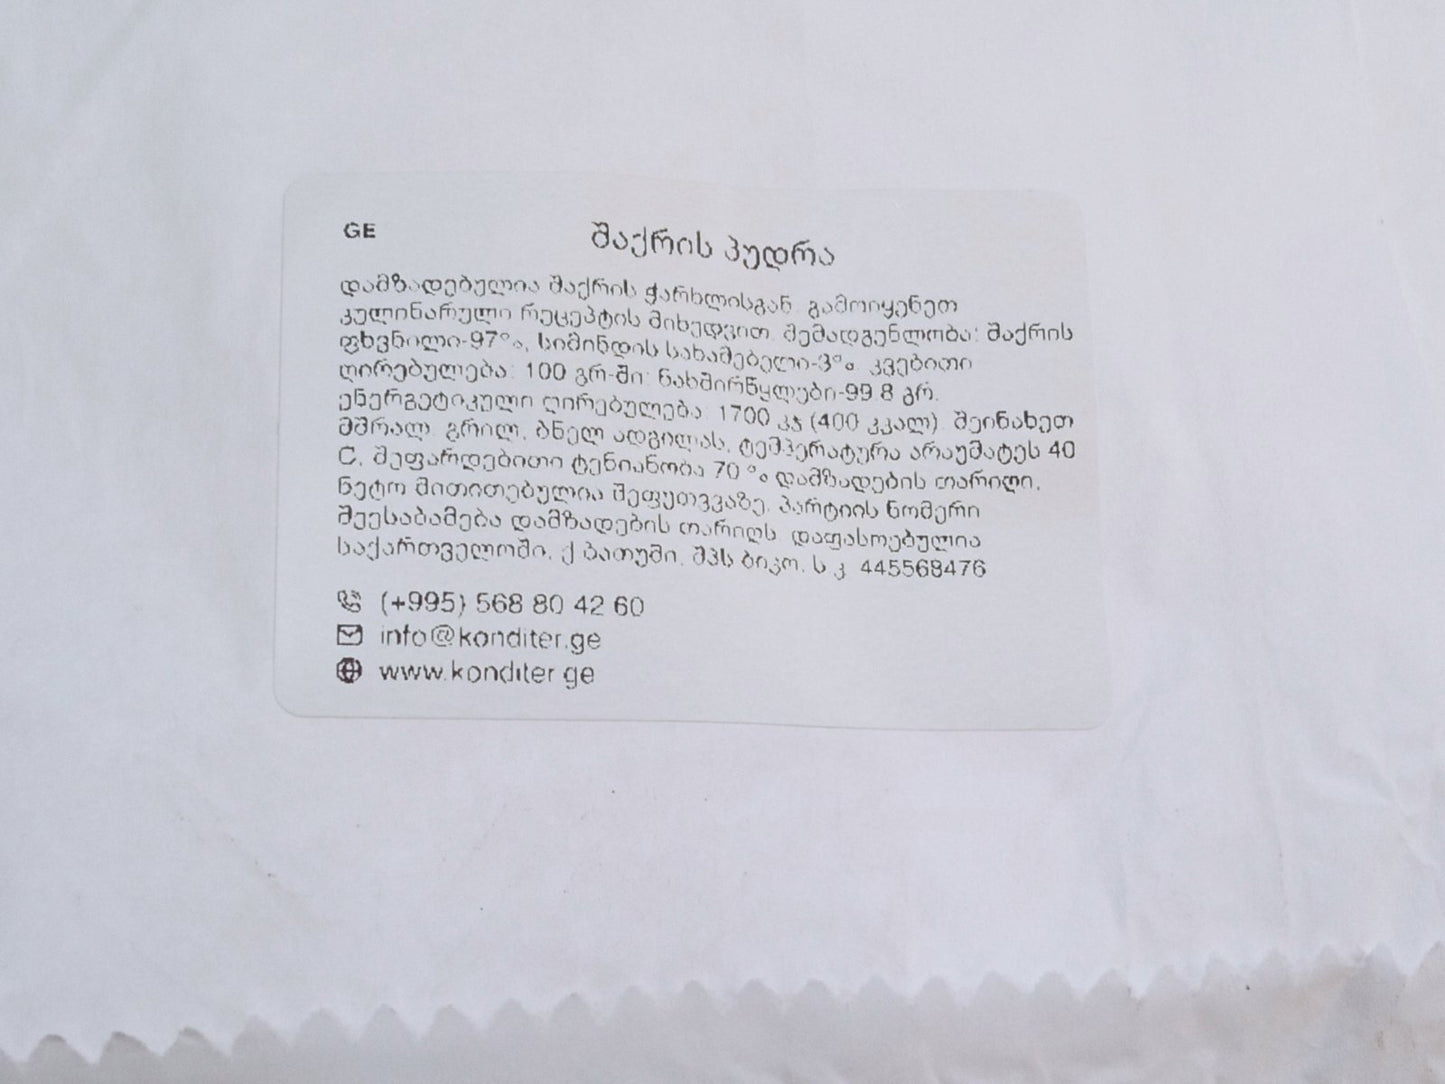 GE
შაქრის პუდრა
დამზადებულია შაქრის ჭარხლისგან. გამოიყენეთ
კულინარული რეცეპტის მიხედვით. შემადგენლობა: შაქრის
ფხვნილი-97%, სიმინდის სახამებელი-3%. კვებითი
ღირებულება: 100 გრ-ში: ნახშირწყლები-99.8 გრ.
ენერგეტიკული ღირებულება: 1700 კჯ (400 კკალ). შეინახეთ
მშრალ, გრილ, ბნელ ადგილას, ტემპერატურა არაუმატეს 40
C, შეფარდებითი ტენიანობა 70 % დამზადების თარიღი,
ნეტო მითითებულია შეფუთვვაზე. პარტიის ნომერი
შეესაბამება დამზადების თარიღს. დაფასოებულია
საქართველოში, ქ.ბათუმი, შპს ბიკო, ს.კ. 445568476
(+995) 568 80 42 60
info@konditer.ge
www.konditer.ge